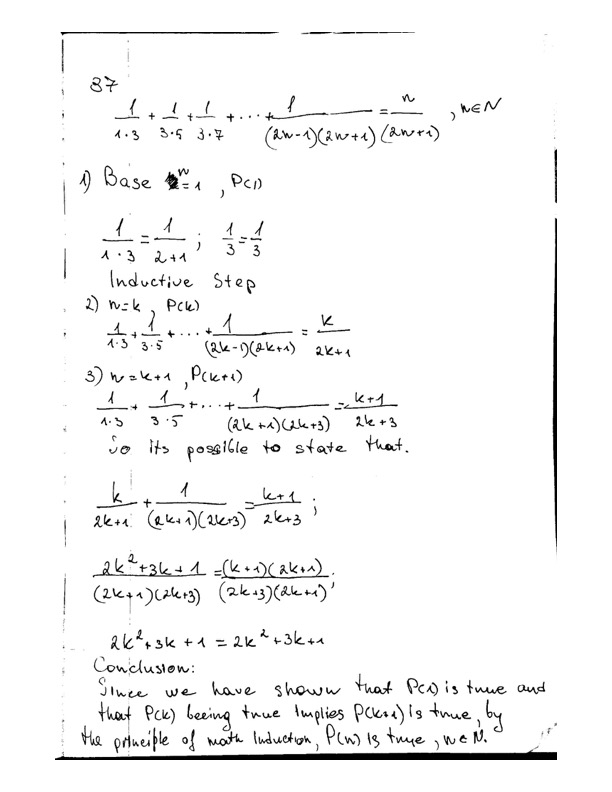 37
1/(1·3) + 1/(3·5) + 1/(3·7) + ... + 1/((2n-1)(2n+1)) = n/(2n+1) , n∈N
1) Base n=1 , P(1)
1/(1·3) = 1/(2+1) ; 1/3 = 1/3
Inductive Step
2) n=k , P(k)
1/(1·3) + 1/(3·5) + ... + 1/((2k-1)(2k+1)) = k/(2k+1)
3) n=k+1 , P(k+1)
1/(1·3) + 1/(3·5) + ... + 1/((2k+1)(2k+3)) = (k+1)/(2k+3)
So its possible to state that.
k/(2k+1) + 1/((2k+1)(2k+3)) = (k+1)/(2k+3) ;
(2k²+3k+1)/((2k+1)(2k+3)) = ((k+1)(2k+1))/((2k+3)(2k+1)) ;
2k²+3k+1 = 2k²+3k+1
Conclusion:
Since we have shown that P(1) is true and
that P(k) beeing true implies P(k+1) is true, by
the principle of math induction, P(n) is true, n∈N.